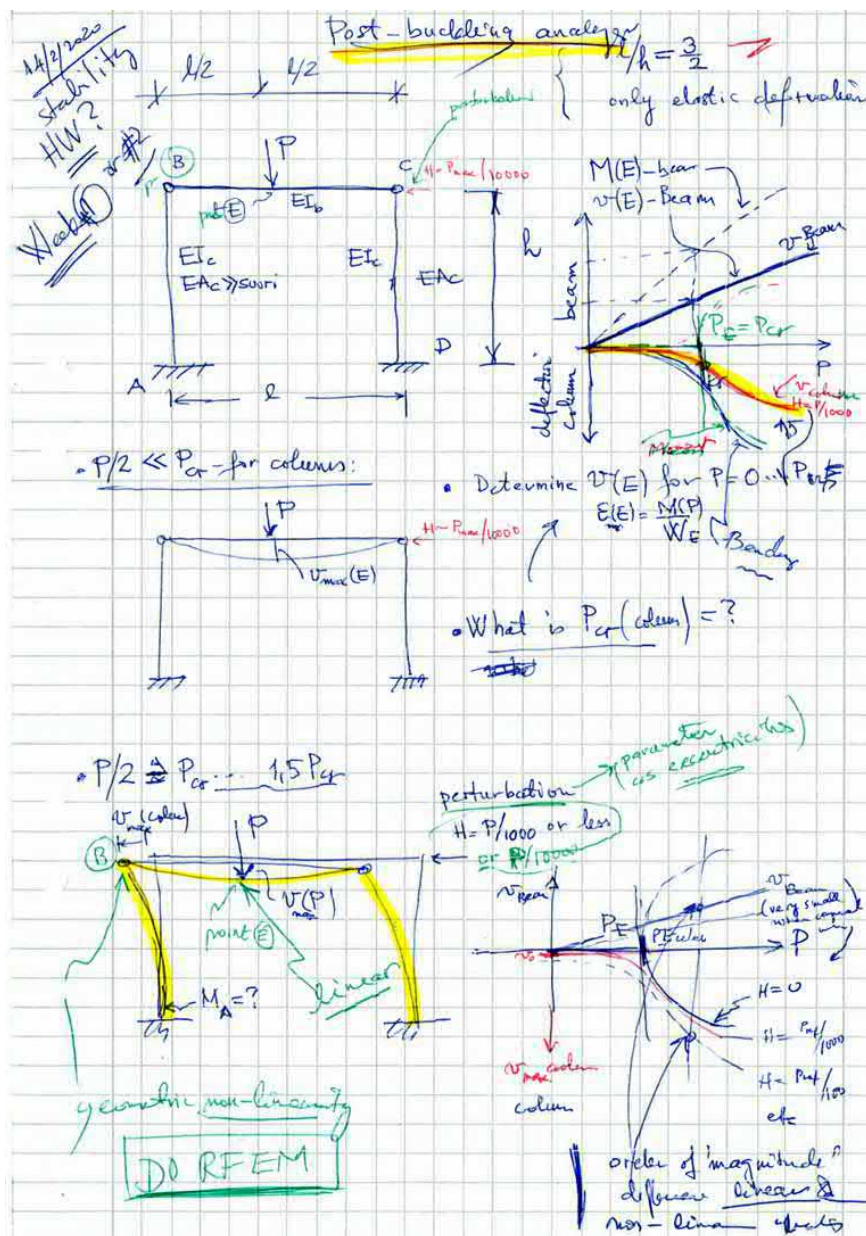 14/2/2020
stability
HW?
Week #1 or #2
Post-buckling analysis
l/h = 3/2
only elastic deformation
l/2 l/2
perturbation
B
P
C
H=Pmax/10000
point E
EIb
EIc
EAc≫suuri
EIc
EAc
h
D
A
l
M(E)-beam
v(E)-Beam
v-Beam
beam
PE=Pcr
P
deflection
column
v column
H=P/1000
• P/2 ≪ Pcr-for columns:
P
H=Pmax/10000
vmax(E)
• Determine v(E) for P=0...
E(E)= M(P)/WE
Bending
• What is Pcr(column)=?
• P/2 ≅ Pcr ... 1,5Pcr
vmax(column)
B
P
v(P)
max
point E
linear
MA=?
geometric non-linearity
DO RFEM
perturbation
parameter
as eccentricities
H=P/1000 or less
or P/10000
vBeam
PE
PEuler
v Beam
(very small
when compared
P
v₀
H=0
H=Pref/1000
H=Pref/100
etc
vmax column
column
order of "magnitude"
difference linear &
non-linear